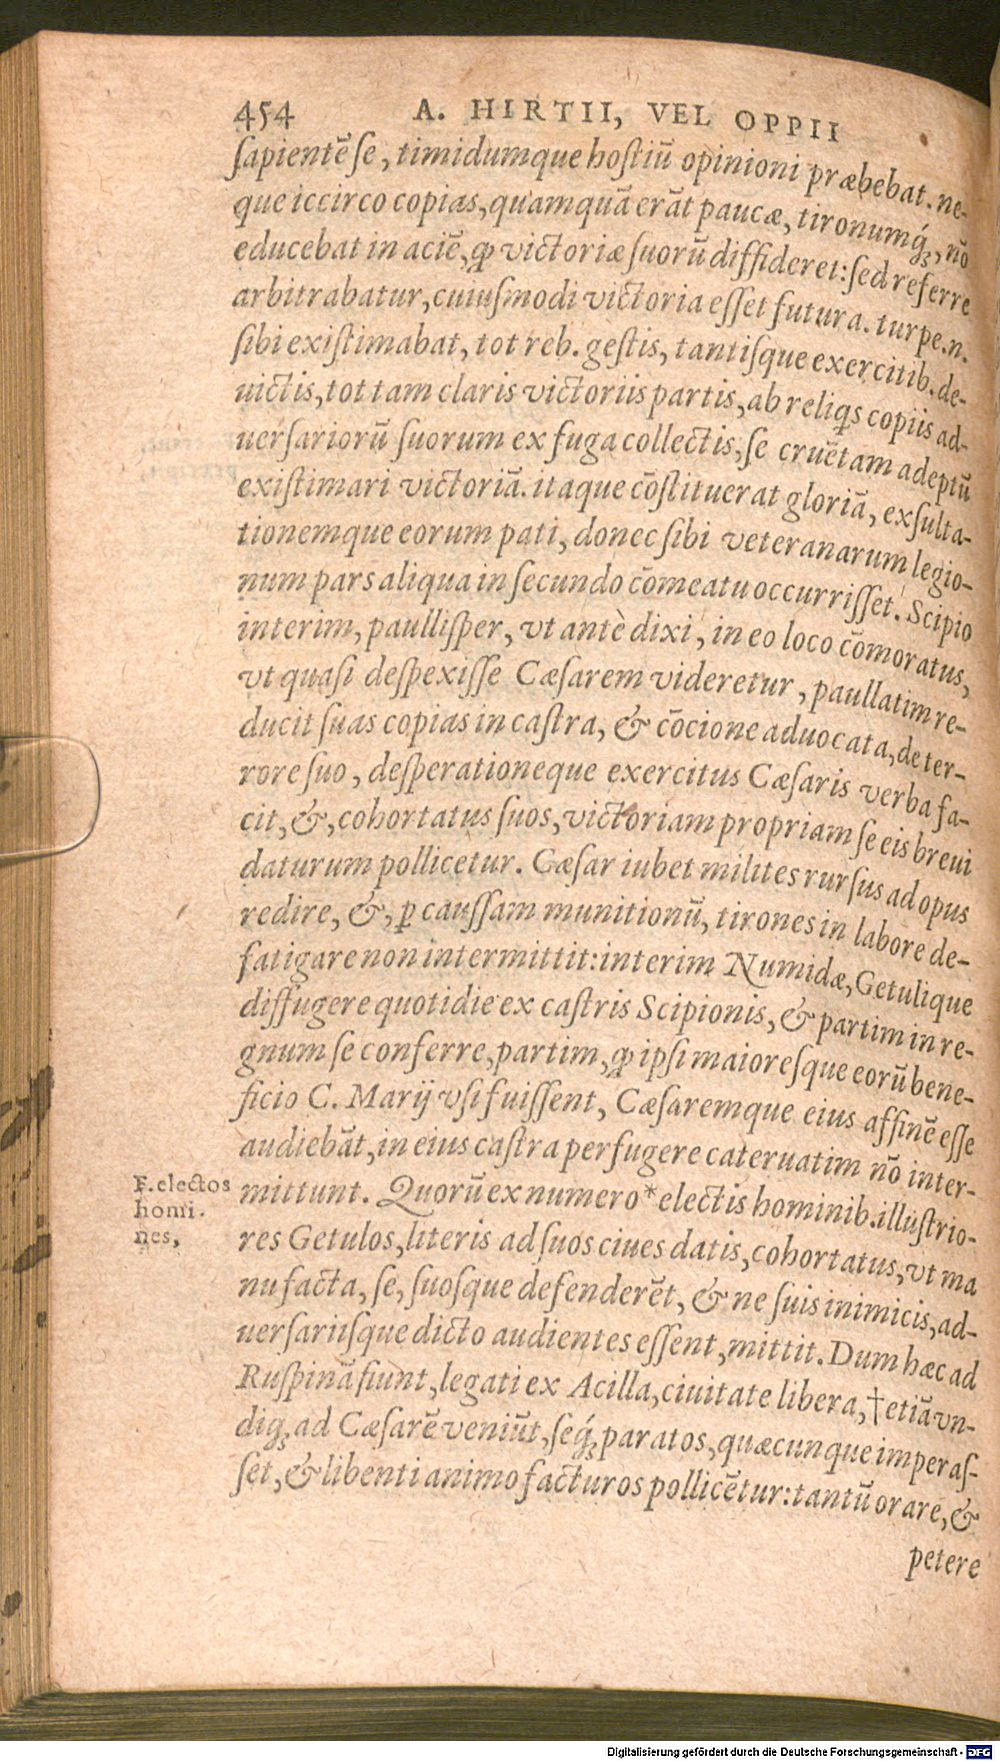 454 A. HIRTII, VEL OPPII
ſapientẽ ſe, timidumque hoſtiũ opinioni præbebat. ne-
que iccirco copias, quamquã erãt paucæ, tironumq́ꝫ, nõ
educebat in aciẽ, ꝙ victoriæ ſuorũ diffideret: ſed referre
arbitrabatur, cuiuſmodi victoria eſſet futura. turpe.n.
ſibi exiſtimabat, tot reb. geſtis, tantiſque exercitib. de-
uictis, tot tam claris victoriis partis, ab reliqs copiis ad-
uerſariorũ ſuorum ex fuga collectis, ſe cruẽtam adeptũ
exiſtimari victoriã. itaque cõſtituerat gloriã, exſulta-
tionemque eorum pati, donec ſibi veteranarum legio-
num pars aliqua in ſecundo cõmeatu occurriſſet. Scipio
interim, paulliſper, vt antè dixi, in eo loco cõmoratus,
vt quaſi deſpexiſſe Cæſarem videretur, paullatim re-
ducit ſuas copias in caſtra, & cõcione aduocata, de ter-
rore ſuo, deſperationeque exercitus Cæſaris verba fa-
cit, &, cohortatus ſuos, victoriam propriam ſe eis breui
daturum pollicetur. Cæſar iubet milites rurſus ad opus
redire, &, ꝑ cauſſam munitionũ, tirones in labore de-
fatigare non intermittit: interim Numidæ, Getulique
diffugere quotidie ex caſtris Scipionis, & partim in re-
gnum ſe conferre, partim, ꝙ ipſi maioreſque eorũ bene-
ficio C. Marij vſi fuiſſent, Cæſaremque eius affinẽ eſſe
audiebãt, in eius caſtra perfugere cateruatim nõ inter-
mittunt. Quorũ ex numero * electis hominib. illuſtrio-
F. electos
homi.
nes,
res Getulos, literis ad ſuos ciues datis, cohortatus, vt ma
nu facta, ſe, ſuoſque defenderẽt, & ne ſuis inimicis, ad-
uerſariiſque dicto audientes eſſent, mittit. Dum hæc ad
Ruſpinã fiunt, legati ex Acilla, ciuitate libera, † etiã vn-
diqꝫ, ad Cæſarẽ veniũt, ſeq́ꝫ paratos, quæcunque imperaſ-
ſet, & libenti animo facturos pollicẽtur: tantũ orare, &
petere
Digitalisierung gefördert durch die Deutsche Forschungsgemeinschaft - DFG